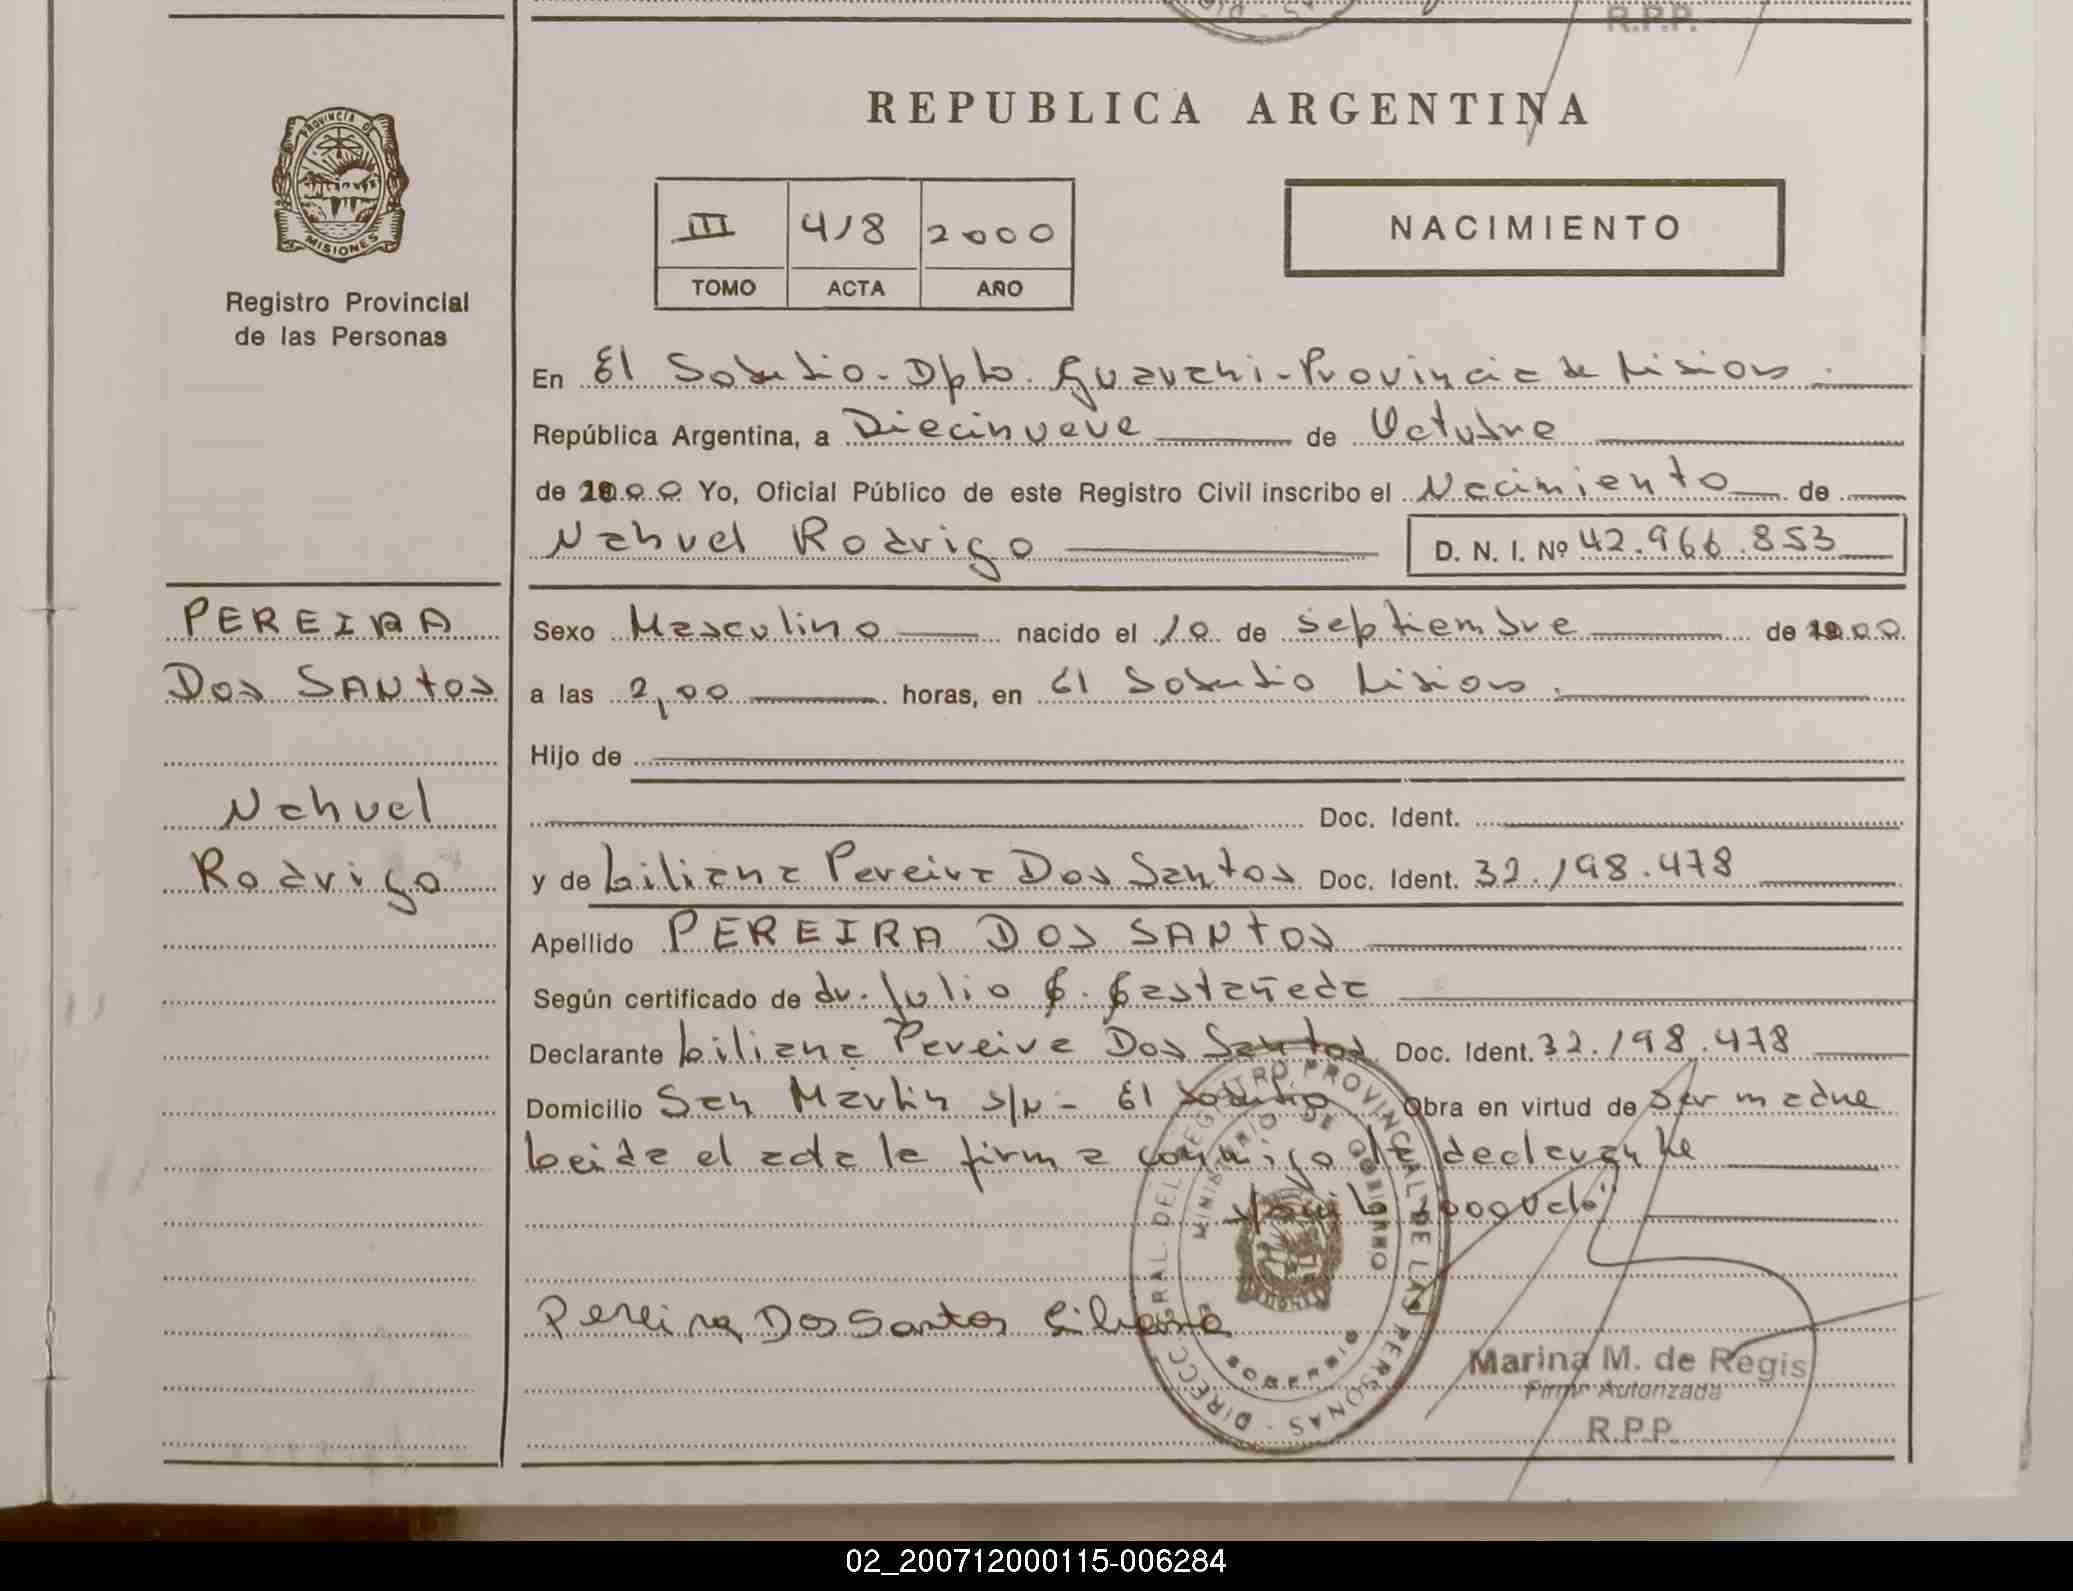 R.P.P.
REPUBLICA ARGENTINA
PROVINCIA DE MISIONES
III 418 2000
TOMO ACTA AÑO
NACIMIENTO
Registro Provincial
de las Personas
En El Soberbio - Dpto. Guarani - Provincia de Misiones.
República Argentina, a Diecinueve de Octubre
de 2000 Yo, Oficial Público de este Registro Civil inscribo el Nacimiento de
Nahuel Rodrigo D. N. I. Nº 42.966.853
PEREIRA
DOS SANTOS
Nahuel
Rodrigo
Sexo Masculino nacido el 10 de Septiembre de 2000
a las 2,00 horas, en El Soberbio Misiones.
Hijo de
Doc. Ident.
y de Liliana Pereira Dos Santos Doc. Ident. 32.198.478
Apellido PEREIRA DOS SANTOS
Según certificado de dr. Julio G. Gastañeda
Declarante Liliana Pereira Dos Santos Doc. Ident. 32.198.478
Domicilio San Martin s/n - El Soberbio Obra en virtud de ser madre
Leida el acta la firma conmigo la declarante
Pereira Dos Santos Liliana
DIRECC. GRAL. DEL REGISTRO PROVINCIAL DE LAS PERSONAS
MINISTERIO DE GOBIERNO
Marina M. de Regis
Firma Autorizada
R.P.P.
02_200712000115-006284